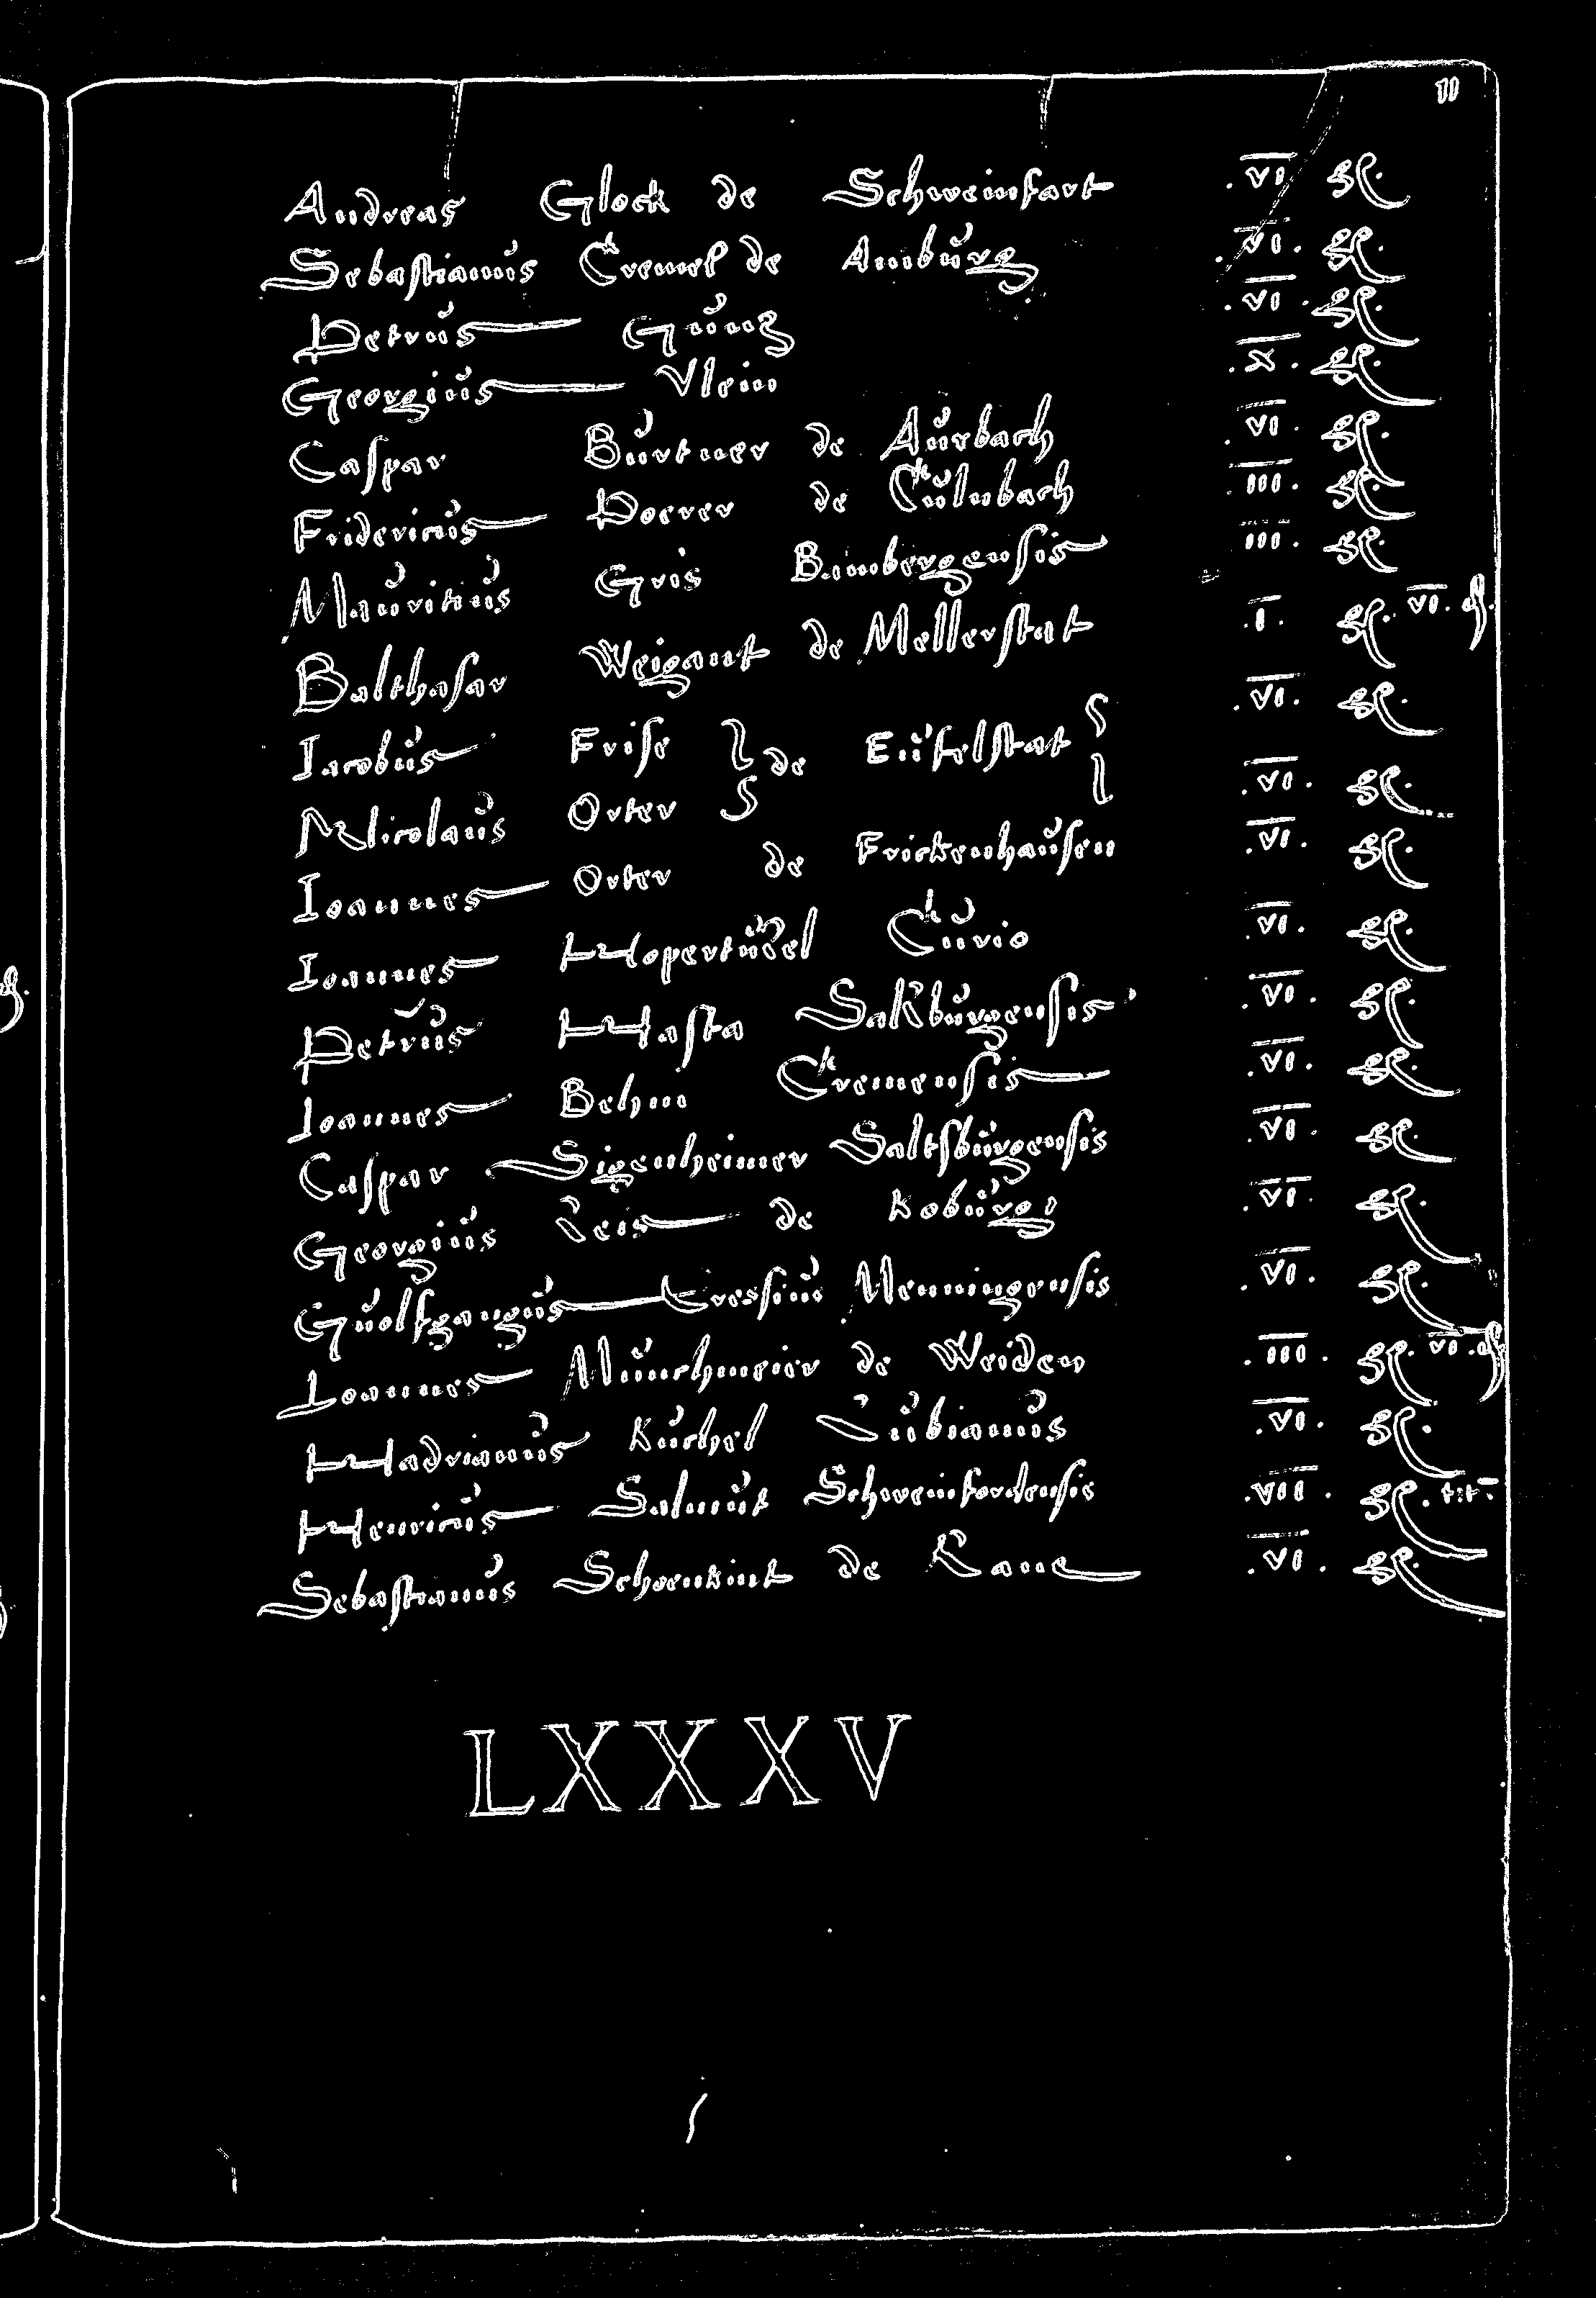 11
Andreas Glock de Schweinfart .vi. gr.
Sebastianus Cremel de Amburg .vi. gr.
Petrus Gung .vi. gr.
Georgius Vlein .x. gr.
Caspar Burtner de Aurbach .vi. gr.
Fridericus Doerer de Culnbach .iii. gr.
Mauritius Gris Bambergensis .iii. gr.
Balthasar Weigant de Mellerstat .i. gr. vi. d.
Iacobus Frise de Eufelstat .vi. gr.
Nicolaus Orter .vi. gr.
Ioannes Orter de Frickenhausen .vi. gr.
Ioannes Hopertudel Curio .vi. gr.
Petrus Hasta Salzburgensis .vi. gr.
Ioannes Behm Cremensis .vi. gr.
Caspar Sigenheimer Saltsburgensis .vi. gr.
Georgius Leis de Koburg .vi. gr.
Guolfgangus Menningensis .vi. gr.
Ioannes Munchmeier de Weiden .iii. gr. vi. d.
Hadrianus Kuchel Lubianus .vi. gr.
Henricus Salmut Schweinfordensis .vii. gr.
Sebastianus Schoenkint de Lane .vi. gr.
LXXXV